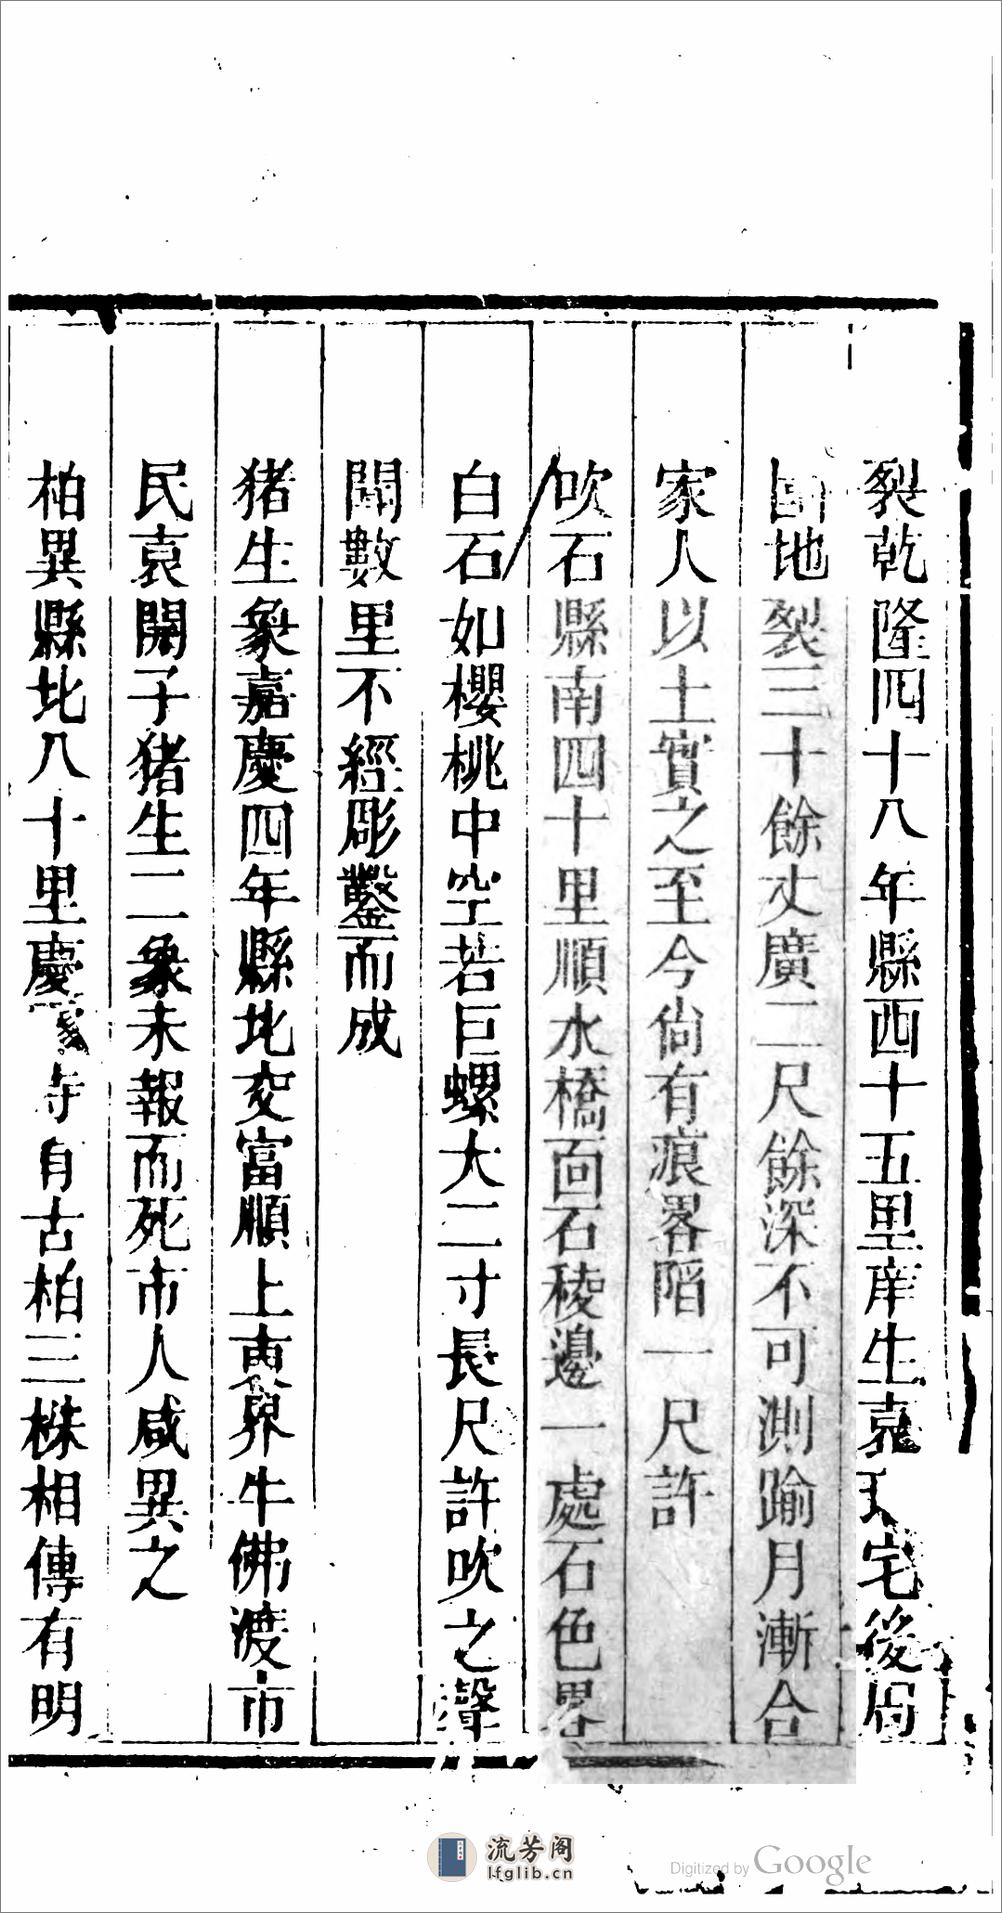 裂乾隆四十八年縣西四十五里庠生袁宅後局
地裂三十餘丈廣二尺餘深不可測踰月漸合
家人以土實之至今尙有痕畧陷一尺許
吹石縣南四十里順水橋面石稜邊一處石色畧
白石如櫻桃中空若巨螺大二寸長尺許吹之聲
聞數里不經彫鑿而成
猪生象嘉慶四年縣北交富順上東界牛佛渡市
民袁開子猪生二象未報而死市人咸異之
柏異縣北八十里慶寺有古柏三株相傳有明
流芳阁
lfglib.cn
Digitized by Google